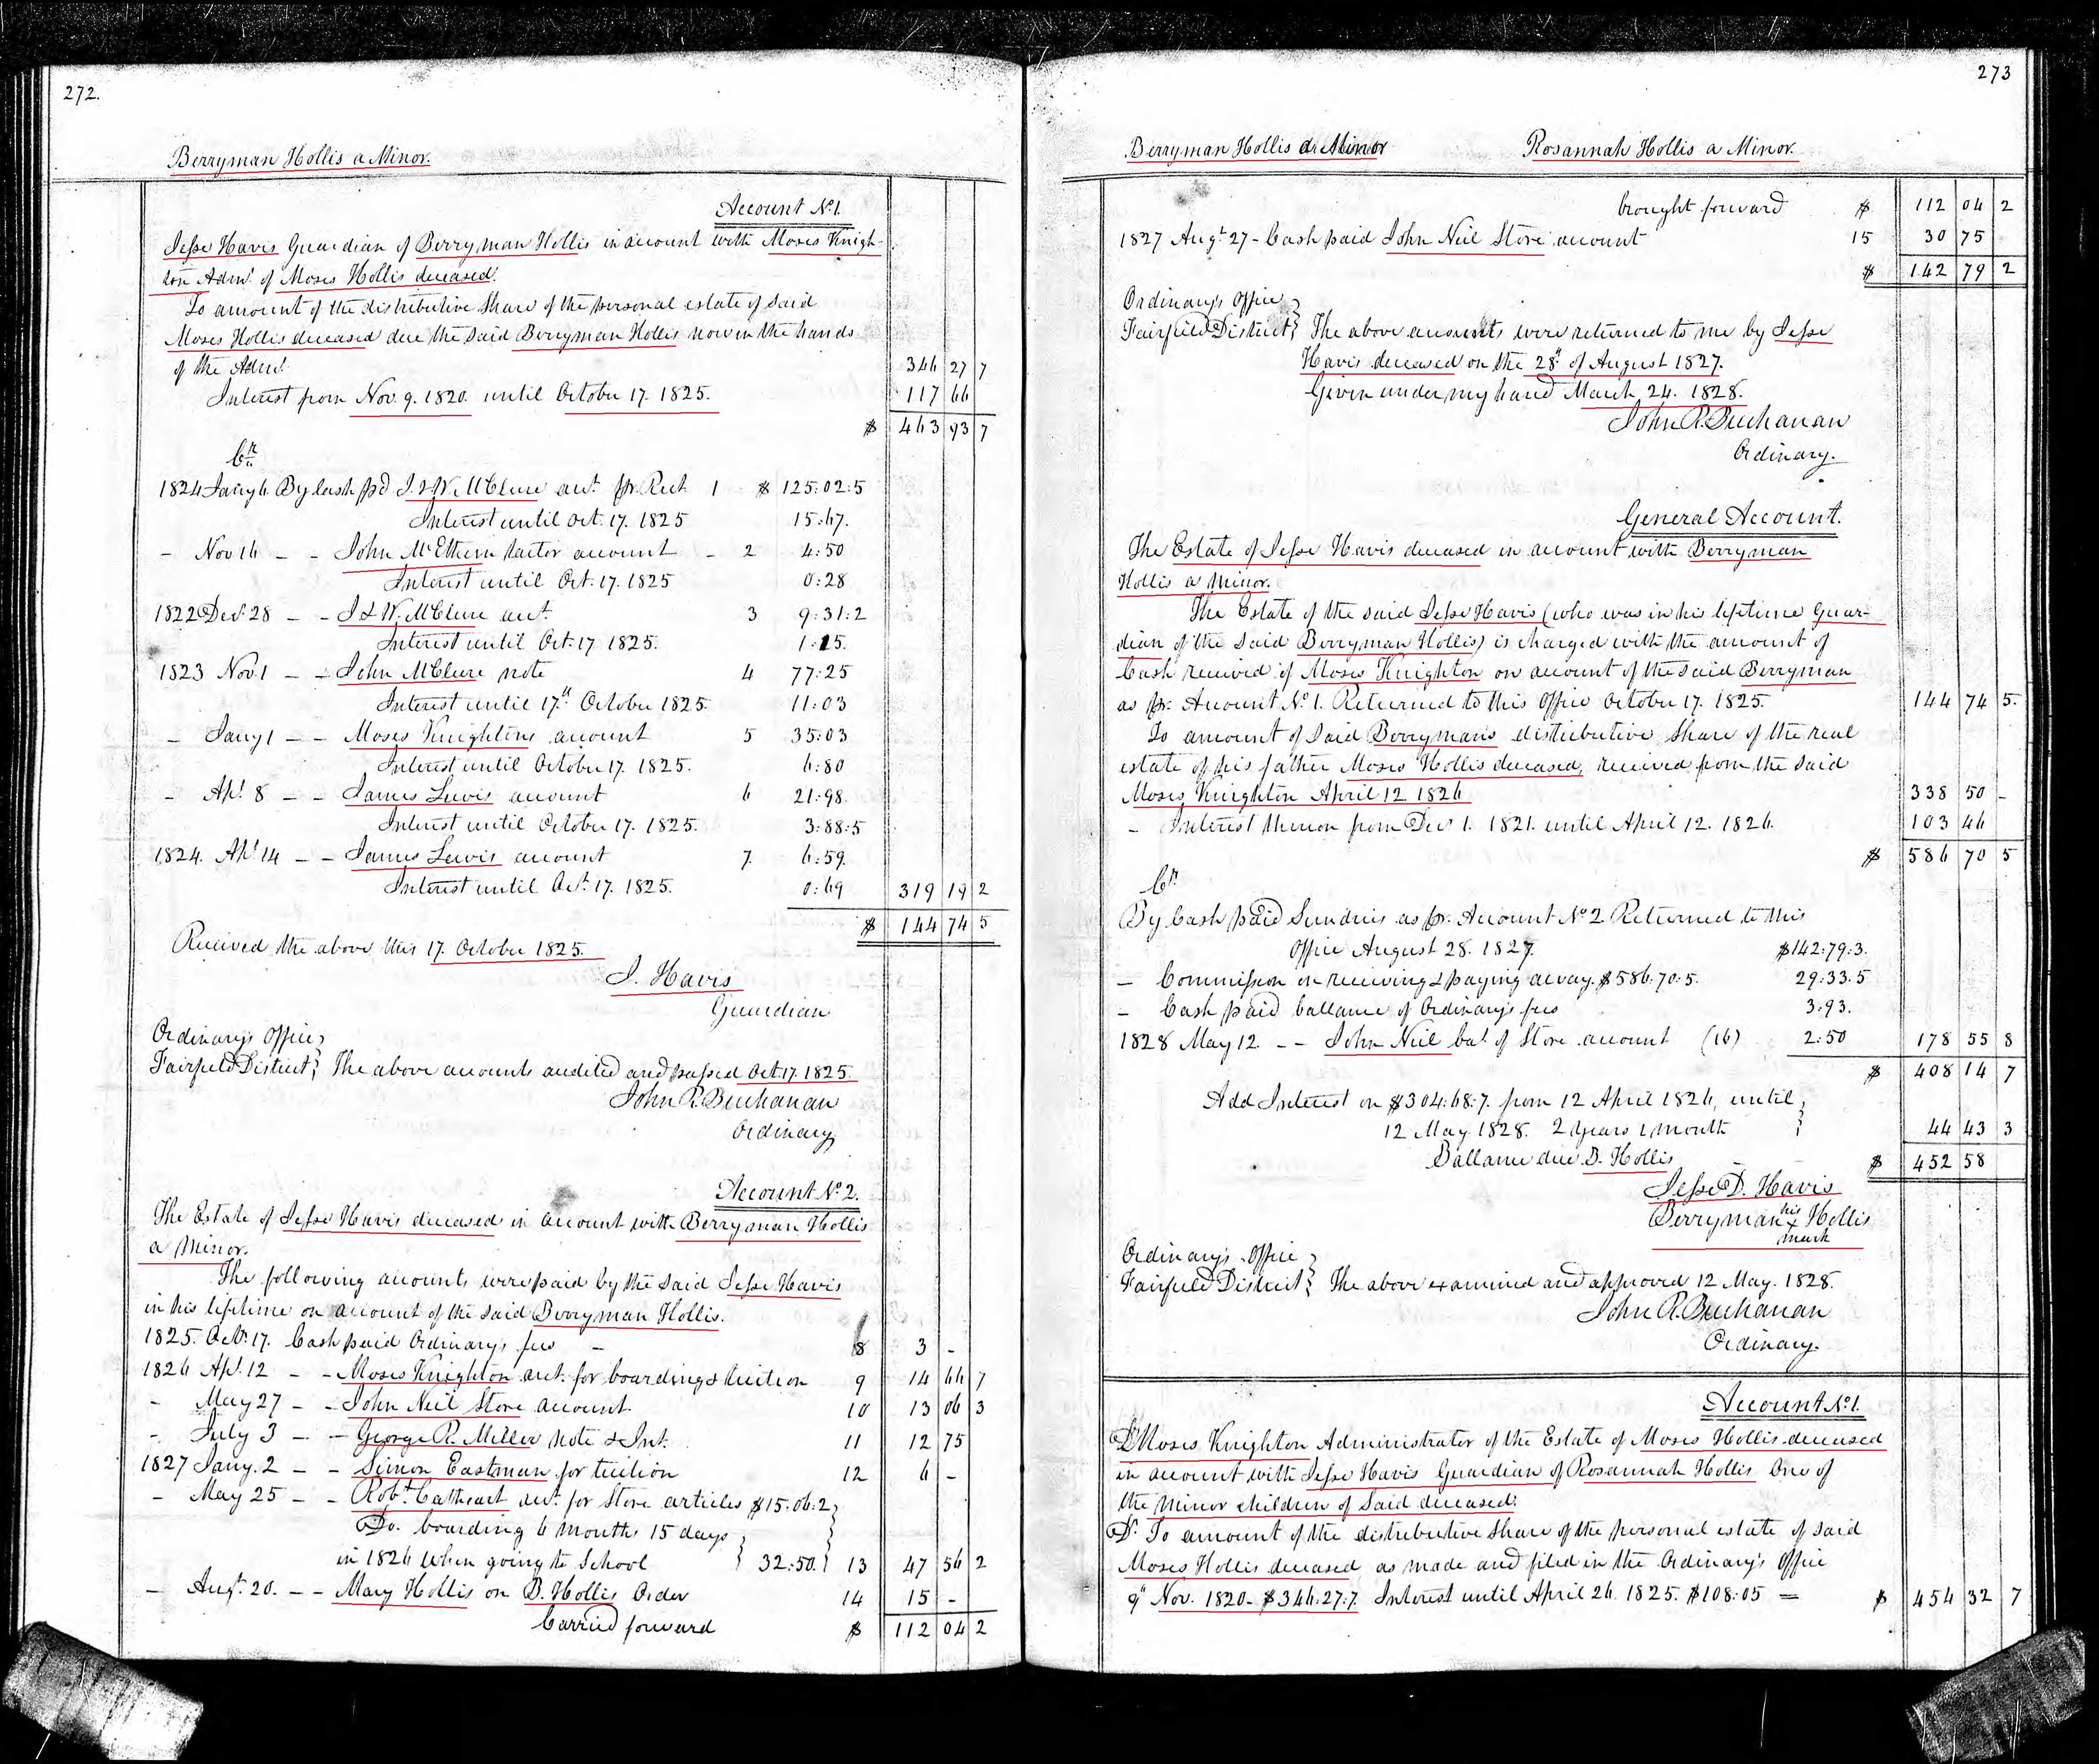 272.
Berryman Hollis a Minor.
Account No 1.
Jesse Havis Guardian of Berryman Hollis in account with Moses Knigh-
ton Admr. of Moses Hollis deceased.
To amount of the distributive Share of the personal estate of said
Moses Hollis deceased due the said Berryman Hollis now in the hands
of the Admr. 346 27 7
Interest from Nov. 9. 1820. until October 17. 1825. 117 66
$ 463 93 7
Cr.
1824 Jany 6. By Cash pd J. & W. McClure act. pr. Rect. 1 $ 125:02:5
Interest until Oct. 17. 1825 15:67.
- Nov 16 - - John McEthern Factor account - 2 4:50
Interest until Oct. 17. 1825 0:28
1822 Decr. 28 - - J & W. McClure act. 3 9:31:2
Interest until Oct. 17 1825. 1:15.
1823 Nov. 1 - - John McClure note 4 77:25
Interest until 17th October 1825. 11:03
- Jany 1 - - Moses Knightons account 5 35:03
Interest until October 17. 1825. 6:80
- Apl. 8 - - James Lewis account 6 21:98.
Interest until October 17. 1825. 3:88:5
1824. Apl 14 - - James Lewis account 7. 6:59.
Interest until Oct. 17. 1825. 0:69 319 19 2
$ 144 74 5
Received the above this 17. October 1825.
J. Havis
Guardian
Ordinary's Office
Fairfield District } The above accounts audited and passed Oct. 17. 1825.
John R. Buchanan
Ordinary
Account No 2.
The Estate of Jesse Havis deceased in account with Berryman Hollis
a Minor.
The following accounts were paid by the said Jesse Havis
in his lifetime on account of the said Berryman Hollis.
1825. Octr. 17. Cash paid Ordinary's fees - 8 3 -
1826 Apl. 12 - - Moses Knighton act. for boarding & tuition 9 14 66 7
- May 27 - - John Neil Store account. 10 13 06 3
- July 3 - - George R. Miller note & Int. 11 12 75
1827 Jany. 2 - - Simon Eastman for tuition 12 6 -
- May 25 - - Robt. Cathcart act. for Store articles $15.06:2
Do. boarding 6 months 15 days
in 1826 when going to School } 32:50. } 13 47 56 2
- Augt. 20. - - Mary Hollis on B. Hollis Order 14 15 -
Carried forward $ 112 04 2
273
Berryman Hollis a Minor Rosannah Hollis a Minor.
brought forward $ 112 04 2
1827 Augt 27 - Cash paid John Neil Store account 15 30 75
$ 142 79 2
Ordinary's Office
Fairfield District } The above accounts were returned to me by Jesse
Havis deceased on the 28th of August 1827.
Given under my hand March 24. 1828.
John R. Buchanan
Ordinary.
General Account.
The Estate of Jesse Havis deceased in account with Berryman
Hollis a Minor.
The Estate of the said Jesse Havis (who was in his lifetime Guar-
dian of the said Berryman Hollis) is charged with the amount of
Cash received of Moses Knighton on account of the said Berryman
as pr. Account No. 1. Returned to this Office October 17. 1825. 144 74 5.
To amount of Said Berrymans distributive Share of the real
estate of his father Moses Hollis deceased, received from the said
Moses Knighton April 12 1826 338 50 -
- Interest thereon from Decr 1. 1821. until April 12. 1826. 103 46
$ 586 70 5
Cr
By Cash paid Sundries as pr. Account No 2 Returned to this
Office August 28. 1827. $142:79:3.
- Commission on receiving & paying away. $586:70:5. 29:33.5
- Cash paid ballance of Ordinary's fees 3:93.
1828 May 12 - - John Neil bal of Store account (16) 2:50 178 55 8
$ 408 14 7
Add Interest on $304:68:7. from 12 April 1826, until
12 May 1828. 2 Years 1 Month } 44 43 3
Ballance due B. Hollis $ 452 58
Jesse D. Havis
Berryman his x mark Hollis
Ordinary's Office
Fairfield District } The above examined and approved 12 May. 1828.
John R. Buchanan
Ordinary.
Account No 1.
Dr Moses Knighton Administrator of the Estate of Moses Hollis deceased
in account with Jesse Havis Guardian of Rosannah Hollis One of
the minor children of Said deceased.
Dr. To amount of the distributive Share of the personal estate of said
Moses Hollis deceased as made and filed in the Ordinary's Office
9th Nov. 1820 - $346.27:7. Interest until April 26. 1825. $108:05 = $ 454 32 7